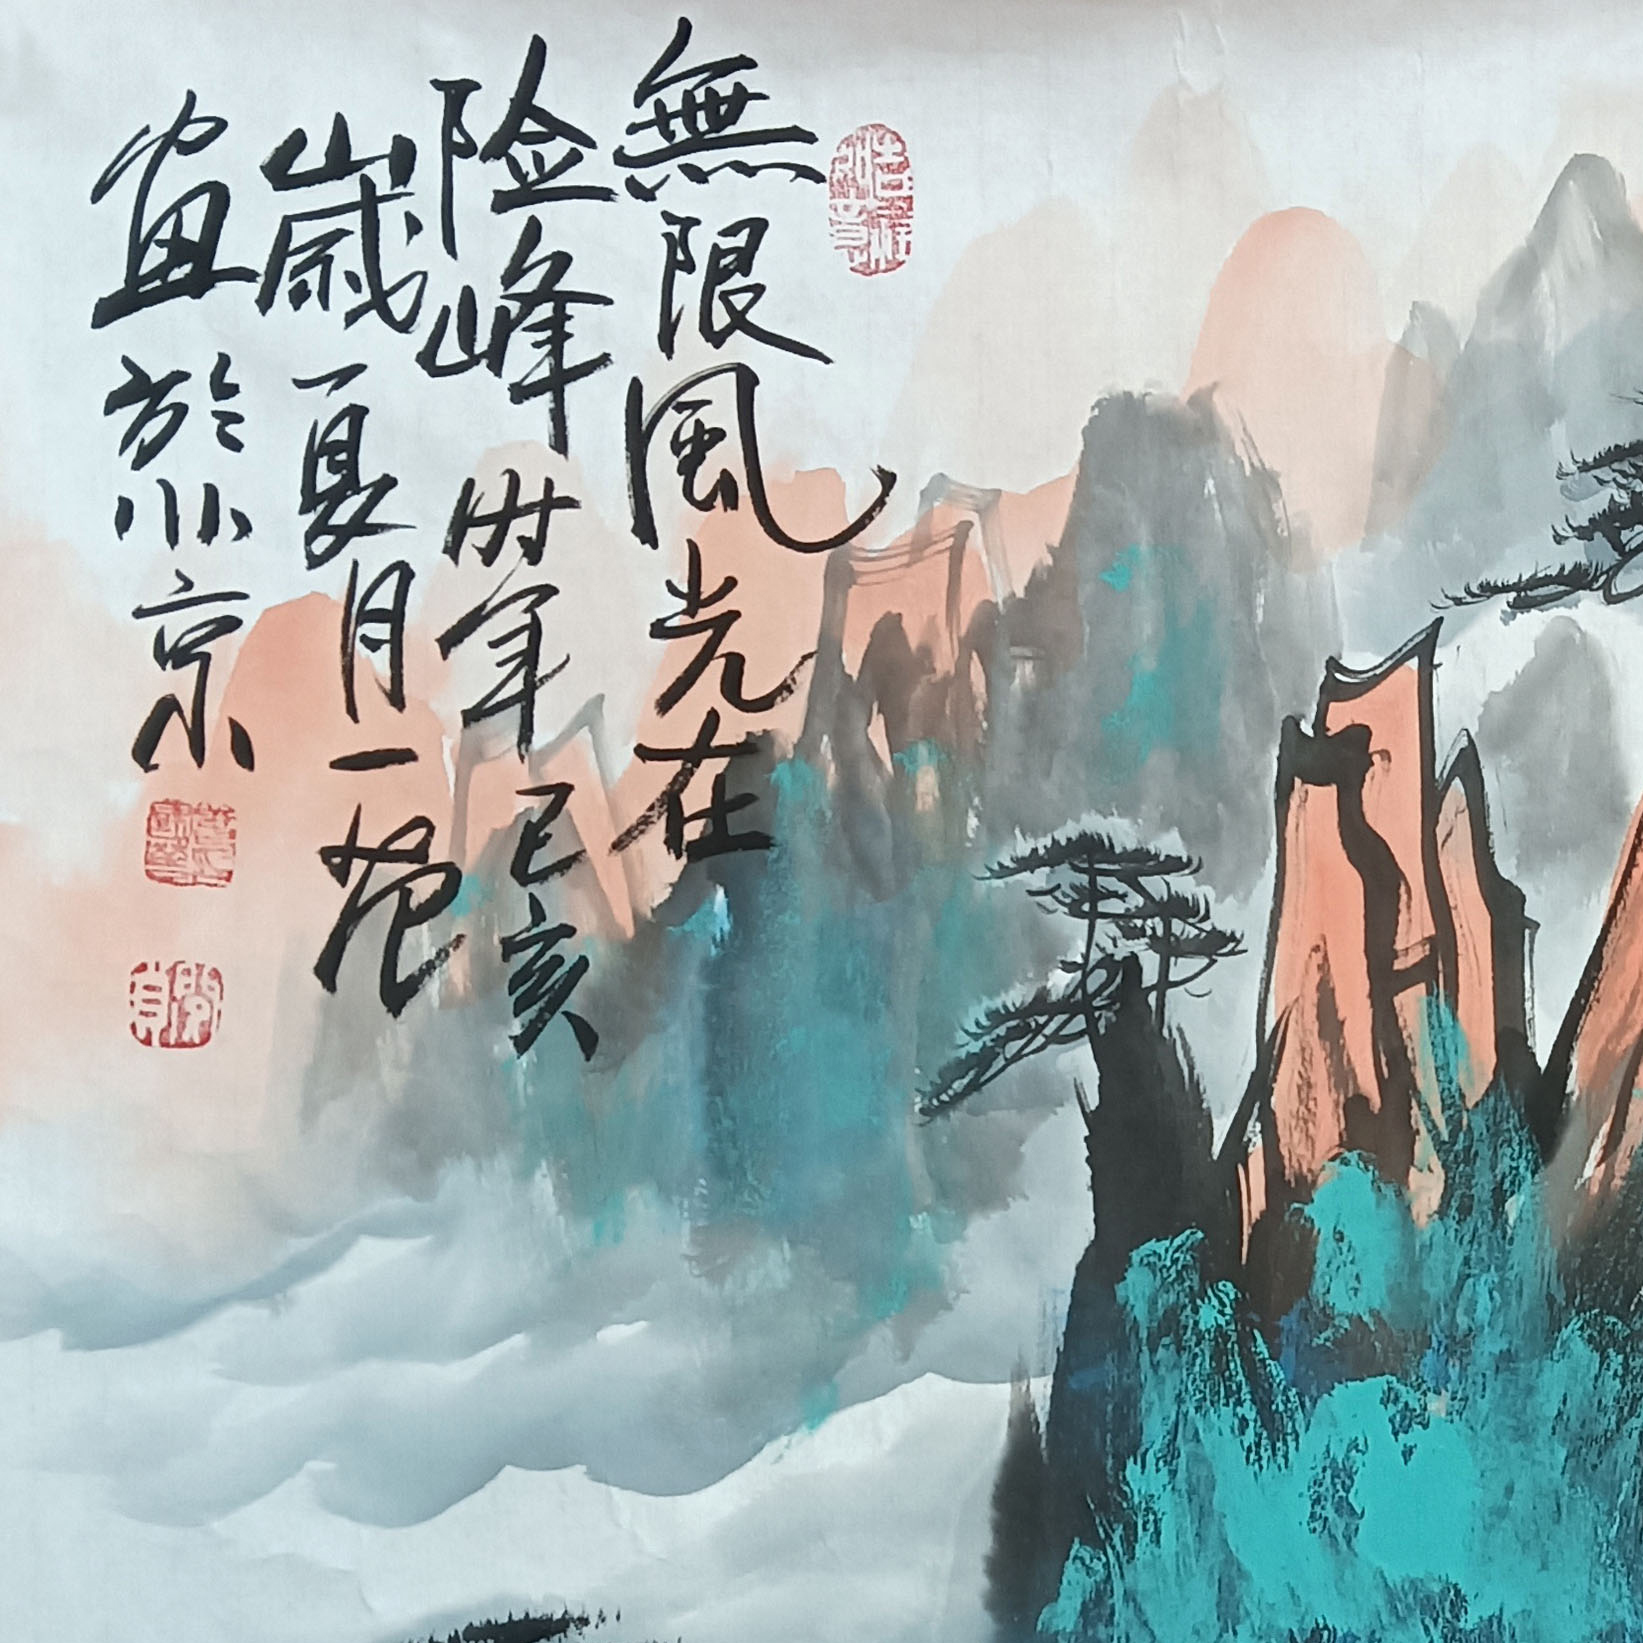 無限風光在
险峰 时年 己亥
歲夏月一
畫於北京